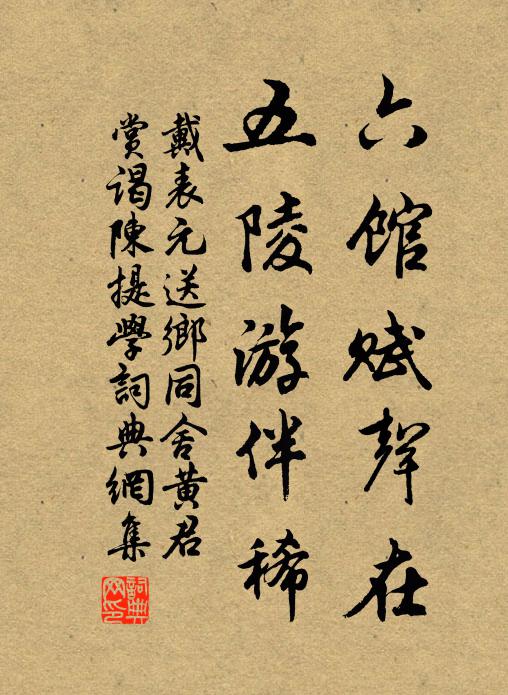 六館賦聲在
五陵游伴稀
戴表元送鄉同舍黄君
賞謁陳提學詞典網集
詞典
网印